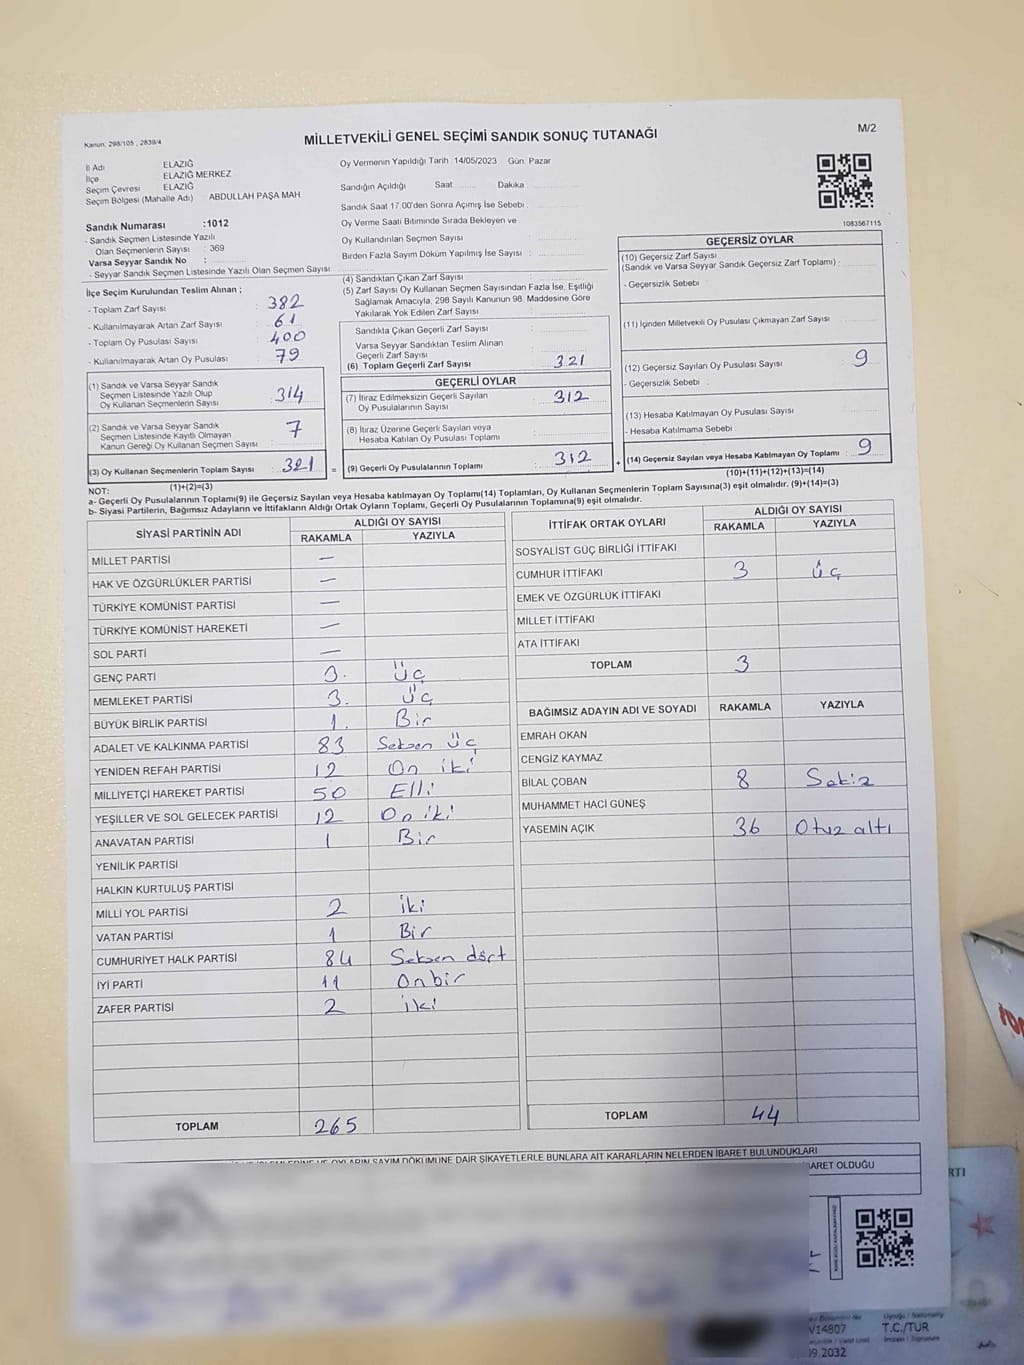 Kanun: 298/105 , 2839/4
MİLLETVEKİLİ GENEL SEÇİMİ SANDIK SONUÇ TUTANAĞI
M/2
İl Adı ELAZIĞ
İlçe ELAZIĞ MERKEZ
Seçim Çevresi ELAZIĞ
Seçim Bölgesi (Mahalle Adı) ABDULLAH PAŞA MAH
Sandık Numarası :1012
- Sandık Seçmen Listesinde Yazılı
Olan Seçmenlerin Sayısı : 369
Varsa Seyyar Sandık No :
- Seyyar Sandık Seçmen Listesinde Yazılı Olan Seçmen Sayısı
Oy Vermenin Yapıldığı Tarih :14/05/2023 Gün: Pazar
Sandığın Açıldığı Saat Dakika :
Sandık Saat 17.00'den Sonra Açımış İse Sebebi :
Oy Verme Saati Bitiminde Sırada Bekleyen ve
Oy Kullandırılan Seçmen Sayısı :
Birden Fazla Sayım Döküm Yapılmış İse Sayısı :
1083567115
İlçe Seçim Kurulundan Teslim Alınan ;
- Toplam Zarf Sayısı : 382
- Kullanılmayarak Artan Zarf Sayısı : 61
- Toplam Oy Pusulası Sayısı : 400
- Kullanılmayarak Artan Oy Pusulası : 79
(1) Sandık ve Varsa Seyyar Sandık
Seçmen Listesinde Yazılı Olup
Oy Kullanan Seçmenlerin Sayısı : 314
(2) Sandık ve Varsa Seyyar Sandık
Seçmen Listesinde Kayıtlı Olmayan
Kanun Gereği Oy Kullanan Seçmen Sayısı : 7
(3) Oy Kullanan Seçmenlerin Toplam Sayısı : 321
(1)+(2)=(3)
(4) Sandıktan Çıkan Zarf Sayısı :
(5) Zarf Sayısı Oy Kullanan Seçmen Sayısından Fazla İse, Eşitliği
Sağlamak Amacıyla, 298 Sayılı Kanunun 98. Maddesine Göre
Yakılarak Yok Edilen Zarf Sayısı :
Sandıkta Çıkan Geçerli Zarf Sayısı :
Varsa Seyyar Sandıktan Teslim Alınan
Geçerli Zarf Sayısı :
(6) Toplam Geçerli Zarf Sayısı : 321
GEÇERLİ OYLAR
(7) İtiraz Edilmeksizin Geçerli Sayılan
Oy Pusulalarının Sayısı : 312
(8) İtiraz Üzerine Geçerli Sayılan veya
Hesaba Katılan Oy Pusulası Toplamı :
= (9) Geçerli Oy Pusulalarının Toplamı : 312
GEÇERSİZ OYLAR
(10) Geçersiz Zarf Sayısı
(Sandık ve Varsa Seyyar Sandık Geçersiz Zarf Toplamı) :
- Geçersizlik Sebebi :
(11) İçinden Milletvekili Oy Pusulası Çıkmayan Zarf Sayısı :
(12) Geçersiz Sayılan Oy Pusulası Sayısı : 9
- Geçersizlik Sebebi :
(13) Hesaba Katılmayan Oy Pusulası Sayısı :
- Hesaba Katılmama Sebebi :
+ (14) Geçersiz Sayılan veya Hesaba Katılmayan Oy Toplamı : 9
(10)+(11)+(12)+(13)=(14)
NOT:
a- Geçerli Oy Pusulalarının Toplamı(9) ile Geçersiz Sayılan veya Hesaba katılmayan Oy Toplamı(14) Toplamları, Oy Kullanan Seçmenlerin Toplam Sayısına(3) eşit olmalıdır. (9)+(14)=(3)
b- Siyasi Partilerin, Bağımsız Adayların ve İttifakların Aldığı Ortak Oyların Toplamı, Geçerli Oy Pusulalarının Toplamına(9) eşit olmalıdır.
SİYASİ PARTİNİN ADI ALDIĞI OY SAYISI
RAKAMLA YAZIYLA
MİLLET PARTİSİ —
HAK VE ÖZGÜRLÜKLER PARTİSİ —
TÜRKİYE KOMÜNİST PARTİSİ —
TÜRKİYE KOMÜNİST HAREKETİ —
SOL PARTİ —
GENÇ PARTİ 3. Üç
MEMLEKET PARTİSİ 3. Üç
BÜYÜK BİRLİK PARTİSİ 1. Bir
ADALET VE KALKINMA PARTİSİ 83 Seksen üç
YENİDEN REFAH PARTİSİ 12 On iki
MİLLİYETÇİ HAREKET PARTİSİ 50 Elli
YEŞİLLER VE SOL GELECEK PARTİSİ 12 On iki
ANAVATAN PARTİSİ 1 Bir
YENİLİK PARTİSİ
HALKIN KURTULUŞ PARTİSİ
MİLLİ YOL PARTİSİ 2 iki
VATAN PARTİSİ 1 Bir
CUMHURİYET HALK PARTİSİ 84 Seksen dört
İYİ PARTİ 11 Onbir
ZAFER PARTİSİ 2 iki
TOPLAM 265
İTTİFAK ORTAK OYLARI ALDIĞI OY SAYISI
RAKAMLA YAZIYLA
SOSYALİST GÜÇ BİRLİĞİ İTTİFAKI
CUMHUR İTTİFAKI 3 Üç
EMEK VE ÖZGÜRLÜK İTTİFAKI
MİLLET İTTİFAKI
ATA İTTİFAKI
TOPLAM 3
BAĞIMSIZ ADAYIN ADI VE SOYADI RAKAMLA YAZIYLA
EMRAH OKAN
CENGİZ KAYMAZ
BİLAL ÇOBAN 8 Sekiz
MUHAMMET HACİ GÜNEŞ
YASEMİN AÇIK 36 Otuz altı
TOPLAM 44
OYLARIN SAYIM DÖKÜMÜNE DAİR ŞİKAYETLERLE BUNLARA AİT KARARLARIN NELERDEN İBARET BULUNDUKLARI
BARET OLDUĞU
RTI
V14807
T.C./TUR
09.2032